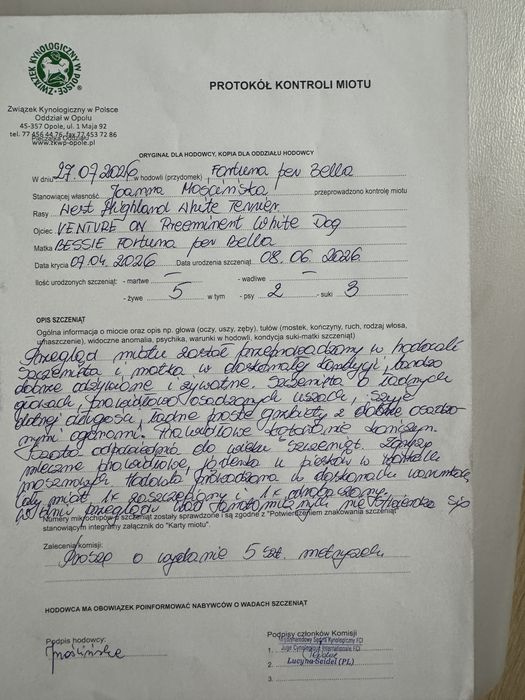 ZWIĄZEK KYNOLOGICZNY W POLSCE
PROTOKÓŁ KONTROLI MIOTU
Związek Kynologiczny w Polsce
Oddział w Opolu
45-357 Opole, ul. 1 Maja 92
tel. 77 456 44 76, fax 77 453 72 86
www.zkwp-opole.pl
ORYGINAŁ DLA HODOWCY, KOPIA DLA ODDZIAŁU HODOWCY
W dniu 27.07.2026 w hodowli (przydomek) Fortuna per Bella
Stanowiącej własność Joanna przeprowadzono kontrolę miotu
Rasy West Highland White Terrier
Ojciec VENTURE ON Preeminent White Dog
Matka BESSIE Fortuna per Bella
Data krycia 07.04.2026 Data urodzenia szczeniąt 08.06.2026
Ilość urodzonych szczeniąt: - martwe – - wadliwe –
- żywe 5 w tym - psy 2 - suki 3
OPIS SZCZENIĄT
Ogólna informacja o miocie oraz opis np. głowa (oczy, uszy, zęby), tułów (mostek, kończyny, ruch, rodzaj włosa,
umaszczenie), widoczne anomalia, psychika, warunki w hodowli, kondycja suki-matki szczeniąt)
Przegląd miotu został przeprowadzony w hodowli
Szczenięta i matka w doskonałej kondycji, bardzo
dobrze odżywione i żywotne. Szczenięta o ładnych
głowach, prawidłowo osadzonych uszach, szyje
długości, ładne proste grzbiety z dobrze osadzo-
nymi ogonami. Prawidłowe kątowanie kończyn.
Szata odpowiednia do wieku szczeniąt. Zgryzy
mleczne prawidłowe, jąderka u piesków w
mosznowych. Hodowla prowadzona w doskonałych warunkach
Cały miot 1x zaszczepiony i 1x odrobaczony.
W dniu przeglądu wad nie stwierdzono
Numery mikrochipów szczeniąt zostały sprawdzone i są zgodne z "Potwierdzeniem znakowania szczeniąt"
stanowiącym integralny załącznik do "Karty miotu".
Zalecenia komisji:
Proszę o wydanie 5 szt. metryczek
HODOWCA MA OBOWIĄZEK POINFORMOWAĆ NABYWCÓW O WADACH SZCZENIĄT
Podpis hodowcy:
Podpisy członków Komisji
Międzynarodowy Sędzia Kynologiczny FCI
1. Juge Cynologique Internationale FCI
2. Lucyna Seidel (PL)
3.